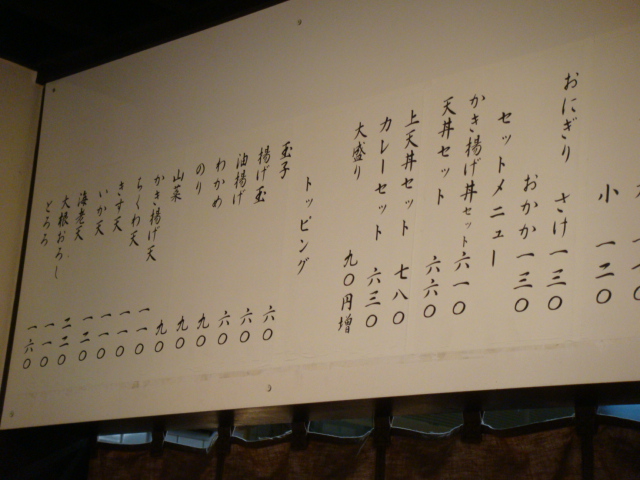 小 一二〇
おにぎり さけ 一三〇
おかか 一三〇
セットメニュー
かき揚げ丼セット 六一〇
天丼セット 六六〇
上天丼セット 七八〇
カレーセット 六三〇
大盛り 九〇円増
トッピング
玉子 六〇
揚げ玉 六〇
油揚げ 六〇
わかめ 六〇
のり 九〇
山菜 九〇
かき揚げ天 九〇
ちくわ天 一一〇
きす天 一一〇
いか天 一一〇
海老天 一二〇
大根おろし 二二〇
とろろ 一一〇
一六〇